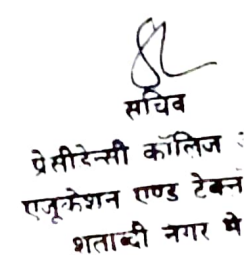 सचिव
प्रेसीडेन्सी कॉलिज
एजूकेशन एण्ड टेक्न
शताब्दी नगर मे